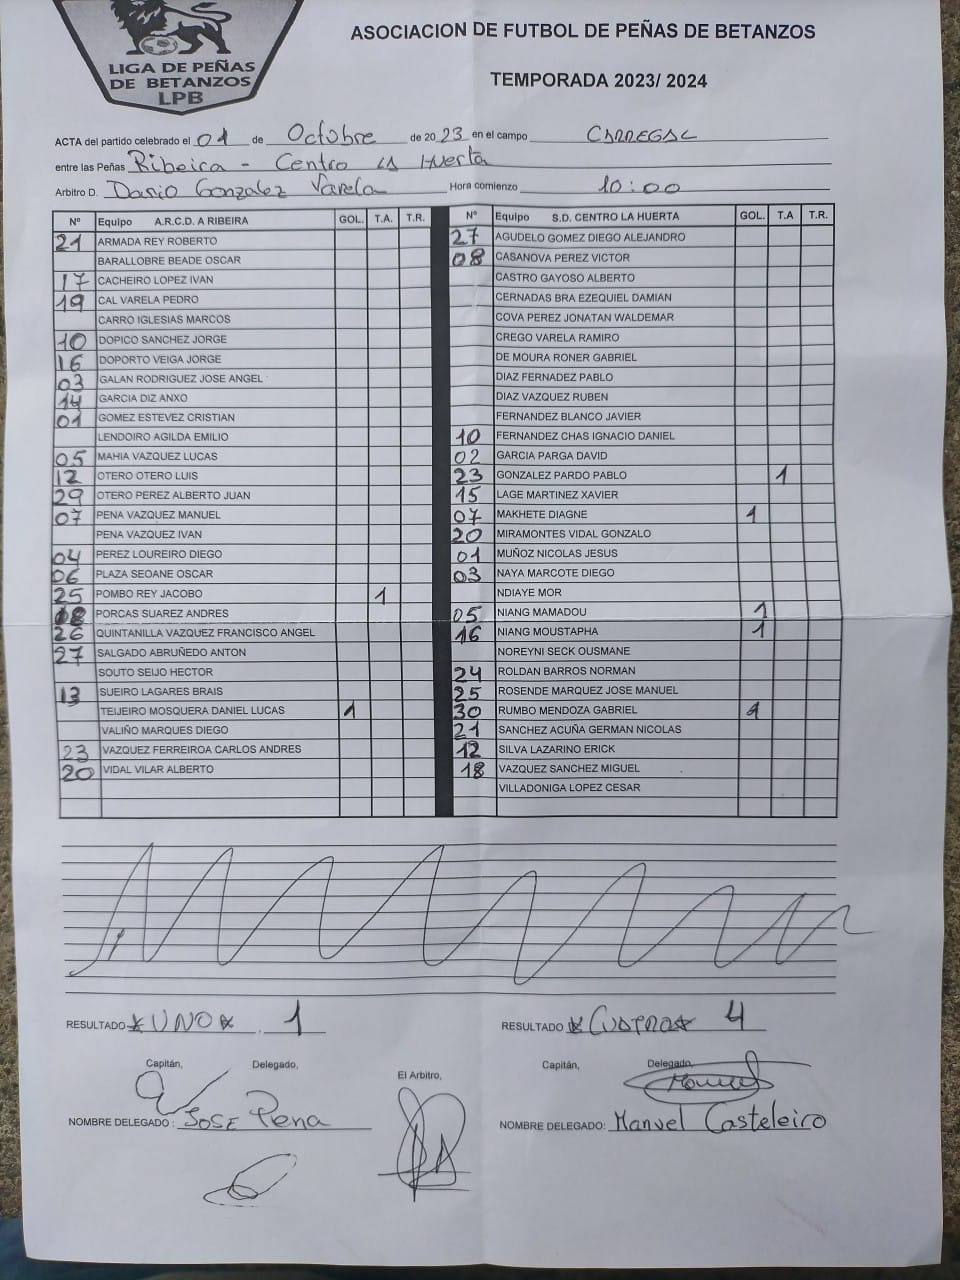 LIGA DE PEÑAS
DE BETANZOS
LPB
ASOCIACION DE FUTBOL DE PEÑAS DE BETANZOS
TEMPORADA 2023/ 2024
ACTA del partido celebrado el 01 de Octubre de 2023 en el campo CARREGAL
entre las Peñas Ribeira - Centro la Huerta
Arbitro D. Dario Gonzalez Varela Hora comienzo 10:00
Nº Equipo A.R.C.D. A RIBEIRA GOL. T.A. T.R. Nº Equipo S.D. CENTRO LA HUERTA GOL. T.A T.R.
21 ARMADA REY ROBERTO 27 AGUDELO GOMEZ DIEGO ALEJANDRO
BARALLOBRE BEADE OSCAR 08 CASANOVA PEREZ VICTOR
17 CACHEIRO LOPEZ IVAN CASTRO GAYOSO ALBERTO
19 CAL VARELA PEDRO CERNADAS BRA EZEQUIEL DAMIAN
CARRO IGLESIAS MARCOS COVA PEREZ JONATAN WALDEMAR
10 DOPICO SANCHEZ JORGE CREGO VARELA RAMIRO
16 DOPORTO VEIGA JORGE DE MOURA RONER GABRIEL
03 GALAN RODRIGUEZ JOSE ANGEL DIAZ FERNADEZ PABLO
14 GARCIA DIZ ANXO DIAZ VAZQUEZ RUBEN
01 GOMEZ ESTEVEZ CRISTIAN FERNANDEZ BLANCO JAVIER
LENDOIRO AGILDA EMILIO 10 FERNANDEZ CHAS IGNACIO DANIEL
05 MAHIA VAZQUEZ LUCAS 02 GARCIA PARGA DAVID
12 OTERO OTERO LUIS 23 GONZALEZ PARDO PABLO 1
29 OTERO PEREZ ALBERTO JUAN 15 LAGE MARTINEZ XAVIER
07 PENA VAZQUEZ MANUEL 07 MAKHETE DIAGNE 1
PENA VAZQUEZ IVAN 20 MIRAMONTES VIDAL GONZALO
04 PEREZ LOUREIRO DIEGO 01 MUÑOZ NICOLAS JESUS
06 PLAZA SEOANE OSCAR 03 NAYA MARCOTE DIEGO
25 POMBO REY JACOBO 1 NDIAYE MOR
08 PORCAS SUAREZ ANDRES 05 NIANG MAMADOU 1
26 QUINTANILLA VAZQUEZ FRANCISCO ANGEL 16 NIANG MOUSTAPHA 1
27 SALGADO ABRUÑEDO ANTON NOREYNI SECK OUSMANE
SOUTO SEIJO HECTOR 24 ROLDAN BARROS NORMAN
13 SUEIRO LAGARES BRAIS 25 ROSENDE MARQUEZ JOSE MANUEL
TEIJEIRO MOSQUERA DANIEL LUCAS 1 30 RUMBO MENDOZA GABRIEL 1
VALIÑO MARQUES DIEGO 21 SANCHEZ ACUÑA GERMAN NICOLAS
23 VAZQUEZ FERREIROA CARLOS ANDRES 12 SILVA LAZARINO ERICK
20 VIDAL VILAR ALBERTO 18 VAZQUEZ SANCHEZ MIGUEL
VILLADONIGA LOPEZ CESAR
RESULTADO *UNO* 1 RESULTADO *CUATRO* 4
Capitán, Delegado, El Arbitro, Capitán, Delegado,
NOMBRE DELEGADO: JOSE Pena NOMBRE DELEGADO: Manuel Casteleiro